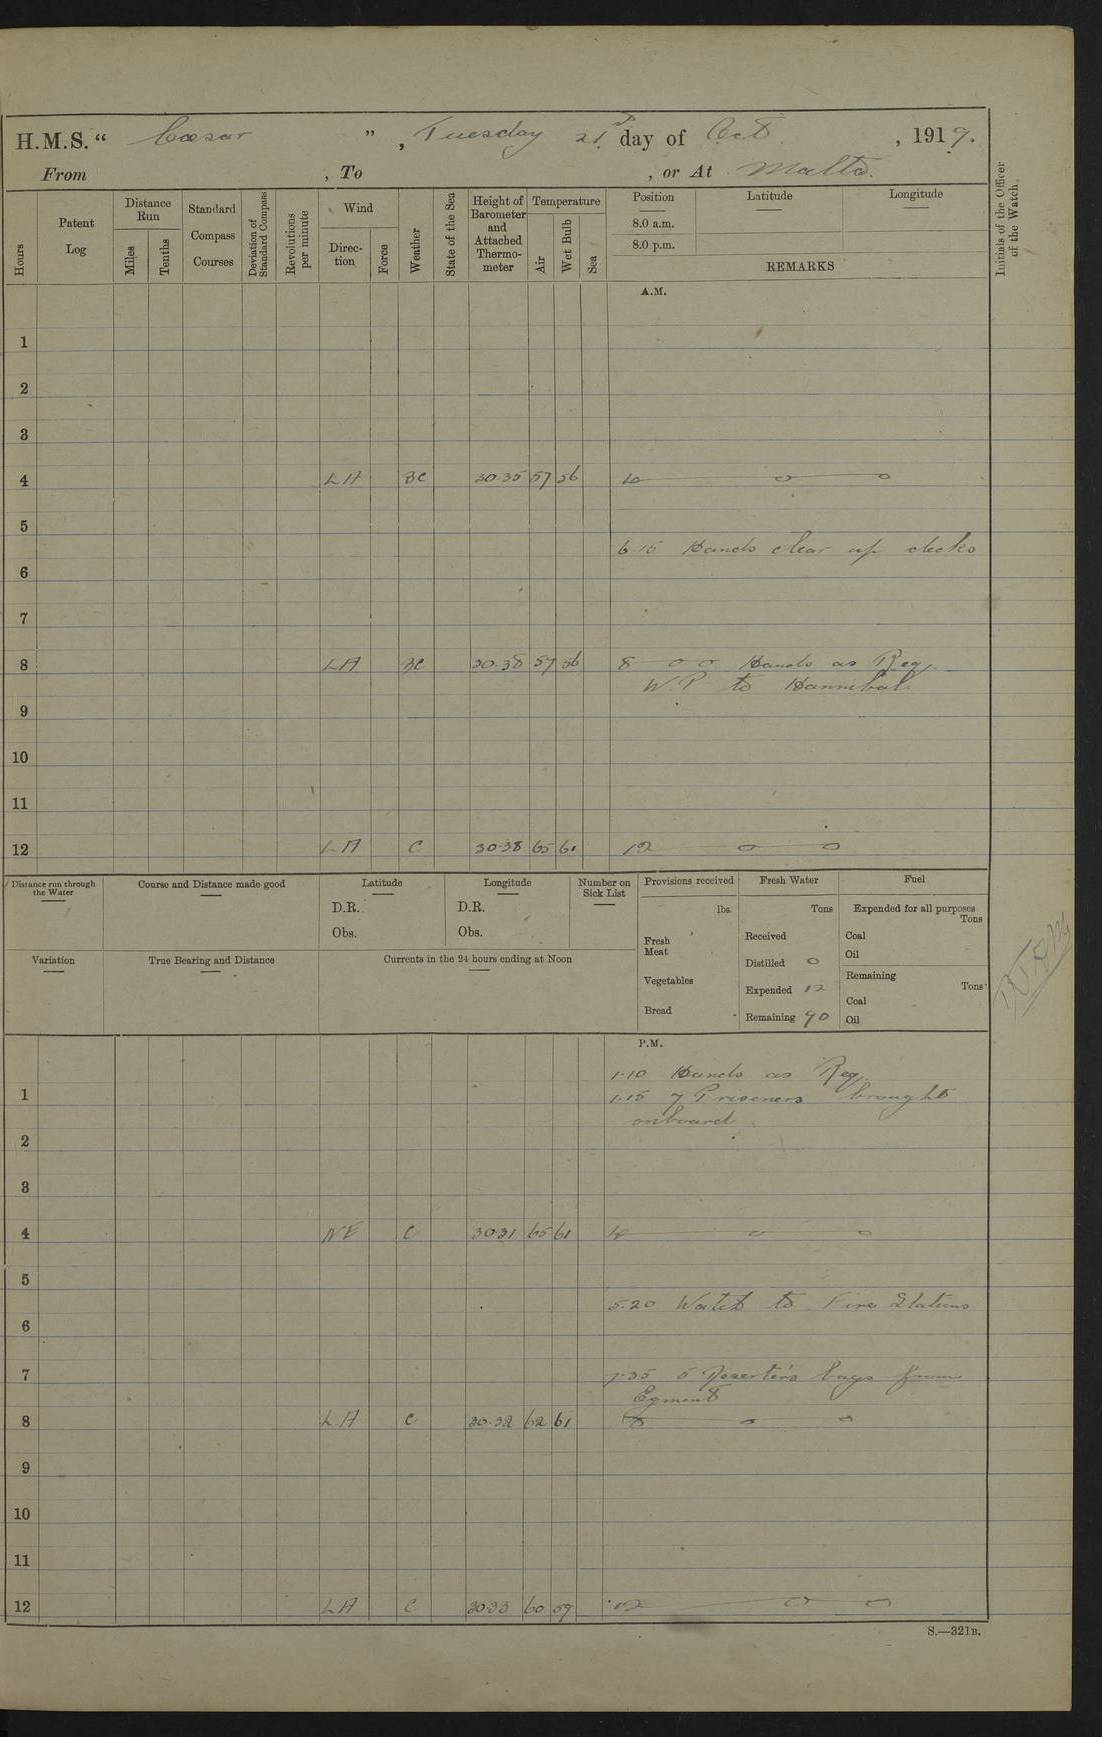 H.M.S. “ Cæsar ”, Tuesday 21st day of Oct , 1919.
From , To , or At Malta.
Hours
Patent Log
Distance Run
Miles
Tenths
Standard Compass Courses
Deviation of Standard Compass
Revolutions per minute
Wind
Direction
Force
Weather
State of the Sea
Height of Barometer and Attached Thermometer
Temperature
Air
Wet Bulb
Sea
Position
Latitude
Longitude
8.0 a.m.
8.0 p.m.
REMARKS
Initials of the Officer of the Watch.
A.M.
1
2
3
4 LA BC 30.35 57 56 4
5
6.15 Hands clear up decks
6
7
8 LA BC 30.38 57 56 8 Hands as Req.
W.P to Hannibal.
9
10
11
12 LA C 30.38 65 61 12
Distance run through the Water
Course and Distance made good
Latitude
D.R.
Obs.
Longitude
D.R.
Obs.
Number on Sick List
Provisions received
lbs.
Fresh Meat
Vegetables
Bread
Fresh Water
Tons
Received
Distilled 0
Expended 12
Remaining 90
Fuel
Expended for all purposes
Tons
Coal
Oil
Remaining
Tons
Coal
Oil
Variation
True Bearing and Distance
Currents in the 24 hours ending at Noon
P.M.
1.10 Hands as Req.
1 1.15 7 Prisoners brought
onboard
2
3
4 NE C 30.31 65 61 4
5
5.20 Watch to Fire Stations
6
7 7.35 5 Deserter's bags from
Egmont
8 LA C 30.32 62 61 8
9
10
11
12 LA C 30.33 60 59 12
S.—321B.